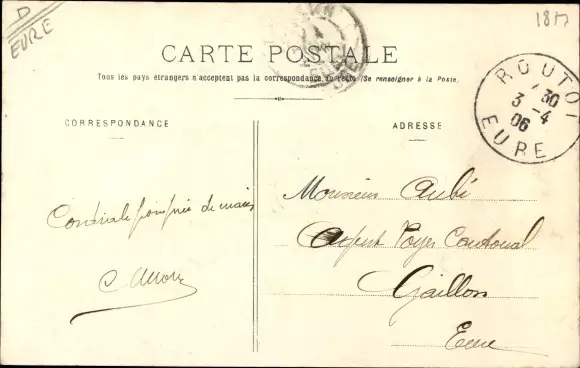 D
EURE
CARTE POSTALE
Tous les pays étrangers n'acceptent pas la correspondance au recto (Se renseigner à la Poste.
CORRESPONDANCE
ADRESSE
ROUTOT
7 30
3 -4
06
EURE
Cordiale poignée de mains
Monsieur Aubé
Agent Voyer Cantonal
Gaillon
Eure